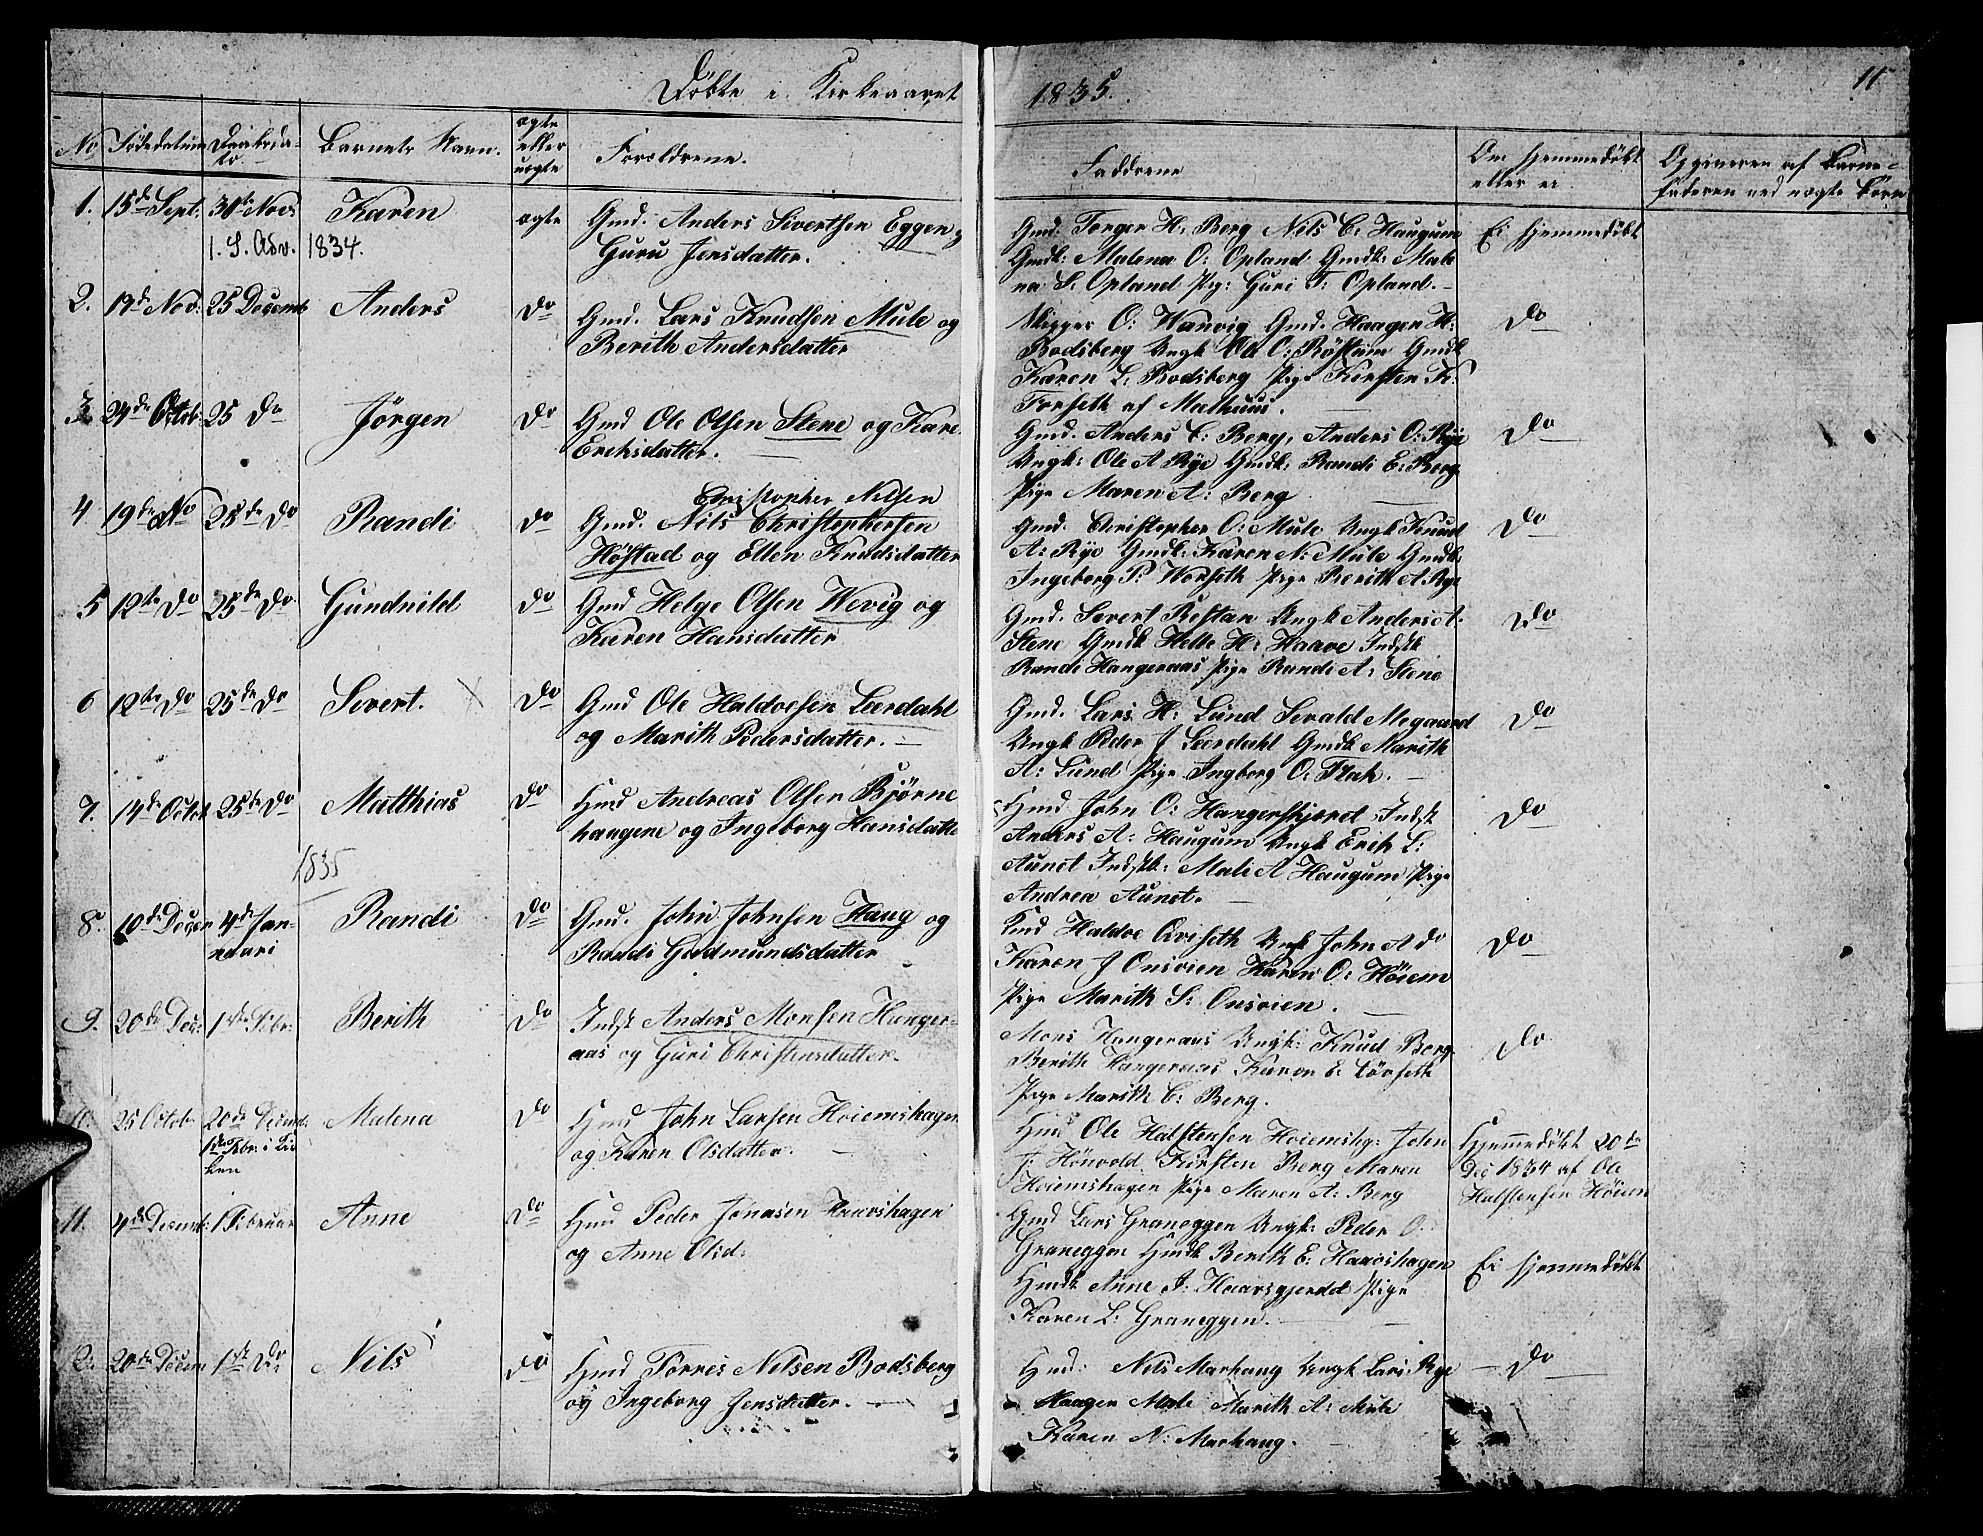 Døbte i Kirkeaaret 1835. 11
No Fødedatum Daabsda-
to.
Barnets Navn.
ægte
eller
uægte
Forældrene.
Faddrene
Om hjemmedøbt
eller ei
Opgiveren af Barne-
faderen ved uægte Børn
1. 15de Sept: 30te Nov: Karen ægte Gmd. Anders Sivertsen Eggen og
1. S. Adv. 1834. Guru Jensdatter.
Gmd. Torger H: Berg Nils C. Haugum Ei hjemmedøbt
Gmdk: Malena O: Opland Gmdk: Male
na S: Opland Pige: Guri T: Opland.
2. 19de Nov: 25 Decemb Anders Do Gmd. Lars Knudsen Mule og
Berith Andersdatter
Skipper O: Hanvig Gmd. Haagen H: Do
Bodsberg Ungk Ole O: Røstum Gmdk
Karen L: Bodsberg Pige Kirsten K:
Forseth af Malhuus.
3 24de Octob: 25 Do Jørgen Do Gmd Ole Olsen Stene og Kare
Erichsdatter.
Gmd. Anders C: Berg, Anders O: Rye Do
Ungk: Ole A Rye Gmdk: Randi E: Berg
Pige Maren A: Berg
4 19de No 25de Do Randi Do Gmd. Nils Christophersen
Christopher Nilsen
Høstad og Ellen Knudsdatter
Gmd. Christopher O: Mule Ungk Knud Do
A: Rye Gmdk: Karen N: Mule Gmdk:
Ingeborg P: Worseth Pige Berith A: Rye
5 12te Do 25de Do Gundnild Do Gmd Helge Olsen Wevig og
Karen Hansdatter
Gmd. Sivert Restan Ungk Anders A. Do
Stene Gmdk Helle H: Haave Indstk
Randi Hangeraas Pige Randi A: Stene
6 12te Do 25de Do Sivert. Do Gmd Ole Haldosen Leerdahl
og Marith Pedersdatter.
Gmd. Lars H: Lund Sivald Megaard Do
Ungk Peder J Leerdahl Gmdk Marith
A: Lund Pige Ingborg O: Flak.
7. 14de Octob 25de Do Matthias Do Hmd Andreas Olsen Bjørne
haagene og Ingeborg Hansdatte
Hmd John O: Hangerskjeret Indst Do
Anders A: Haugum Ungk Erik L:
Aunet Indstk: Mali A Haugum Pige
Andrea Aunet.
1835
8. 10de Decem 4de Jan- Randi Do Gmd. John Johnsen Haug og
nuari Randi Gudmundsdatter
Kmd Haldoe Qviseth Ungk John A do Do
Karen J Onsøien Karen O: Høiem
Pige Marith S: Onsøien.
9. 20de Dec: 1ste Febr: Berith Do Indst Anders Monsen Hanger-
aas og Guri Christensdatter.
Mons Hangeraas Ungk: Knud Berg Do
Berith Hangeraas Karen E Lørseth
Pige Marith C: Berg.
10. 25 Octob 20de Decemb: Malena Do Hmd John Larsen Høiemshagen
1ste Febr: i Kir
ken og Karen Olsdatter.
Hmd Ole Halstensen Høiemshg: John Hjemmedøbt 20de
J: Hønvold Kirsten Berg Maren Dec 1834 af Ole
Høiemshagen Pige Maren A: Berg Halstensen Høiem
11. 4de Decemb: 1 Februar Anne Do Hmd Peder Jonasen Haarshagen
og Anne Olsd:
Gmd Lars Graneggen Ungk: Peder O.
Graneggen Hmdk Berith E: Haarshagen Ei hjemmedøbt
Hmdk Anne J: Haarsgjerdet Pige
Karen L: Graneggen.
2. 20de Decem 1ste Do Nils Do Hmd Torres Nilsen Bodsberg
og Ingeborg Jensdatter.
Hmd: Nils Marhaug Ungk Lars Rye Do
Haagen Mule Marith A: Mule
Karen N: Marhaug.